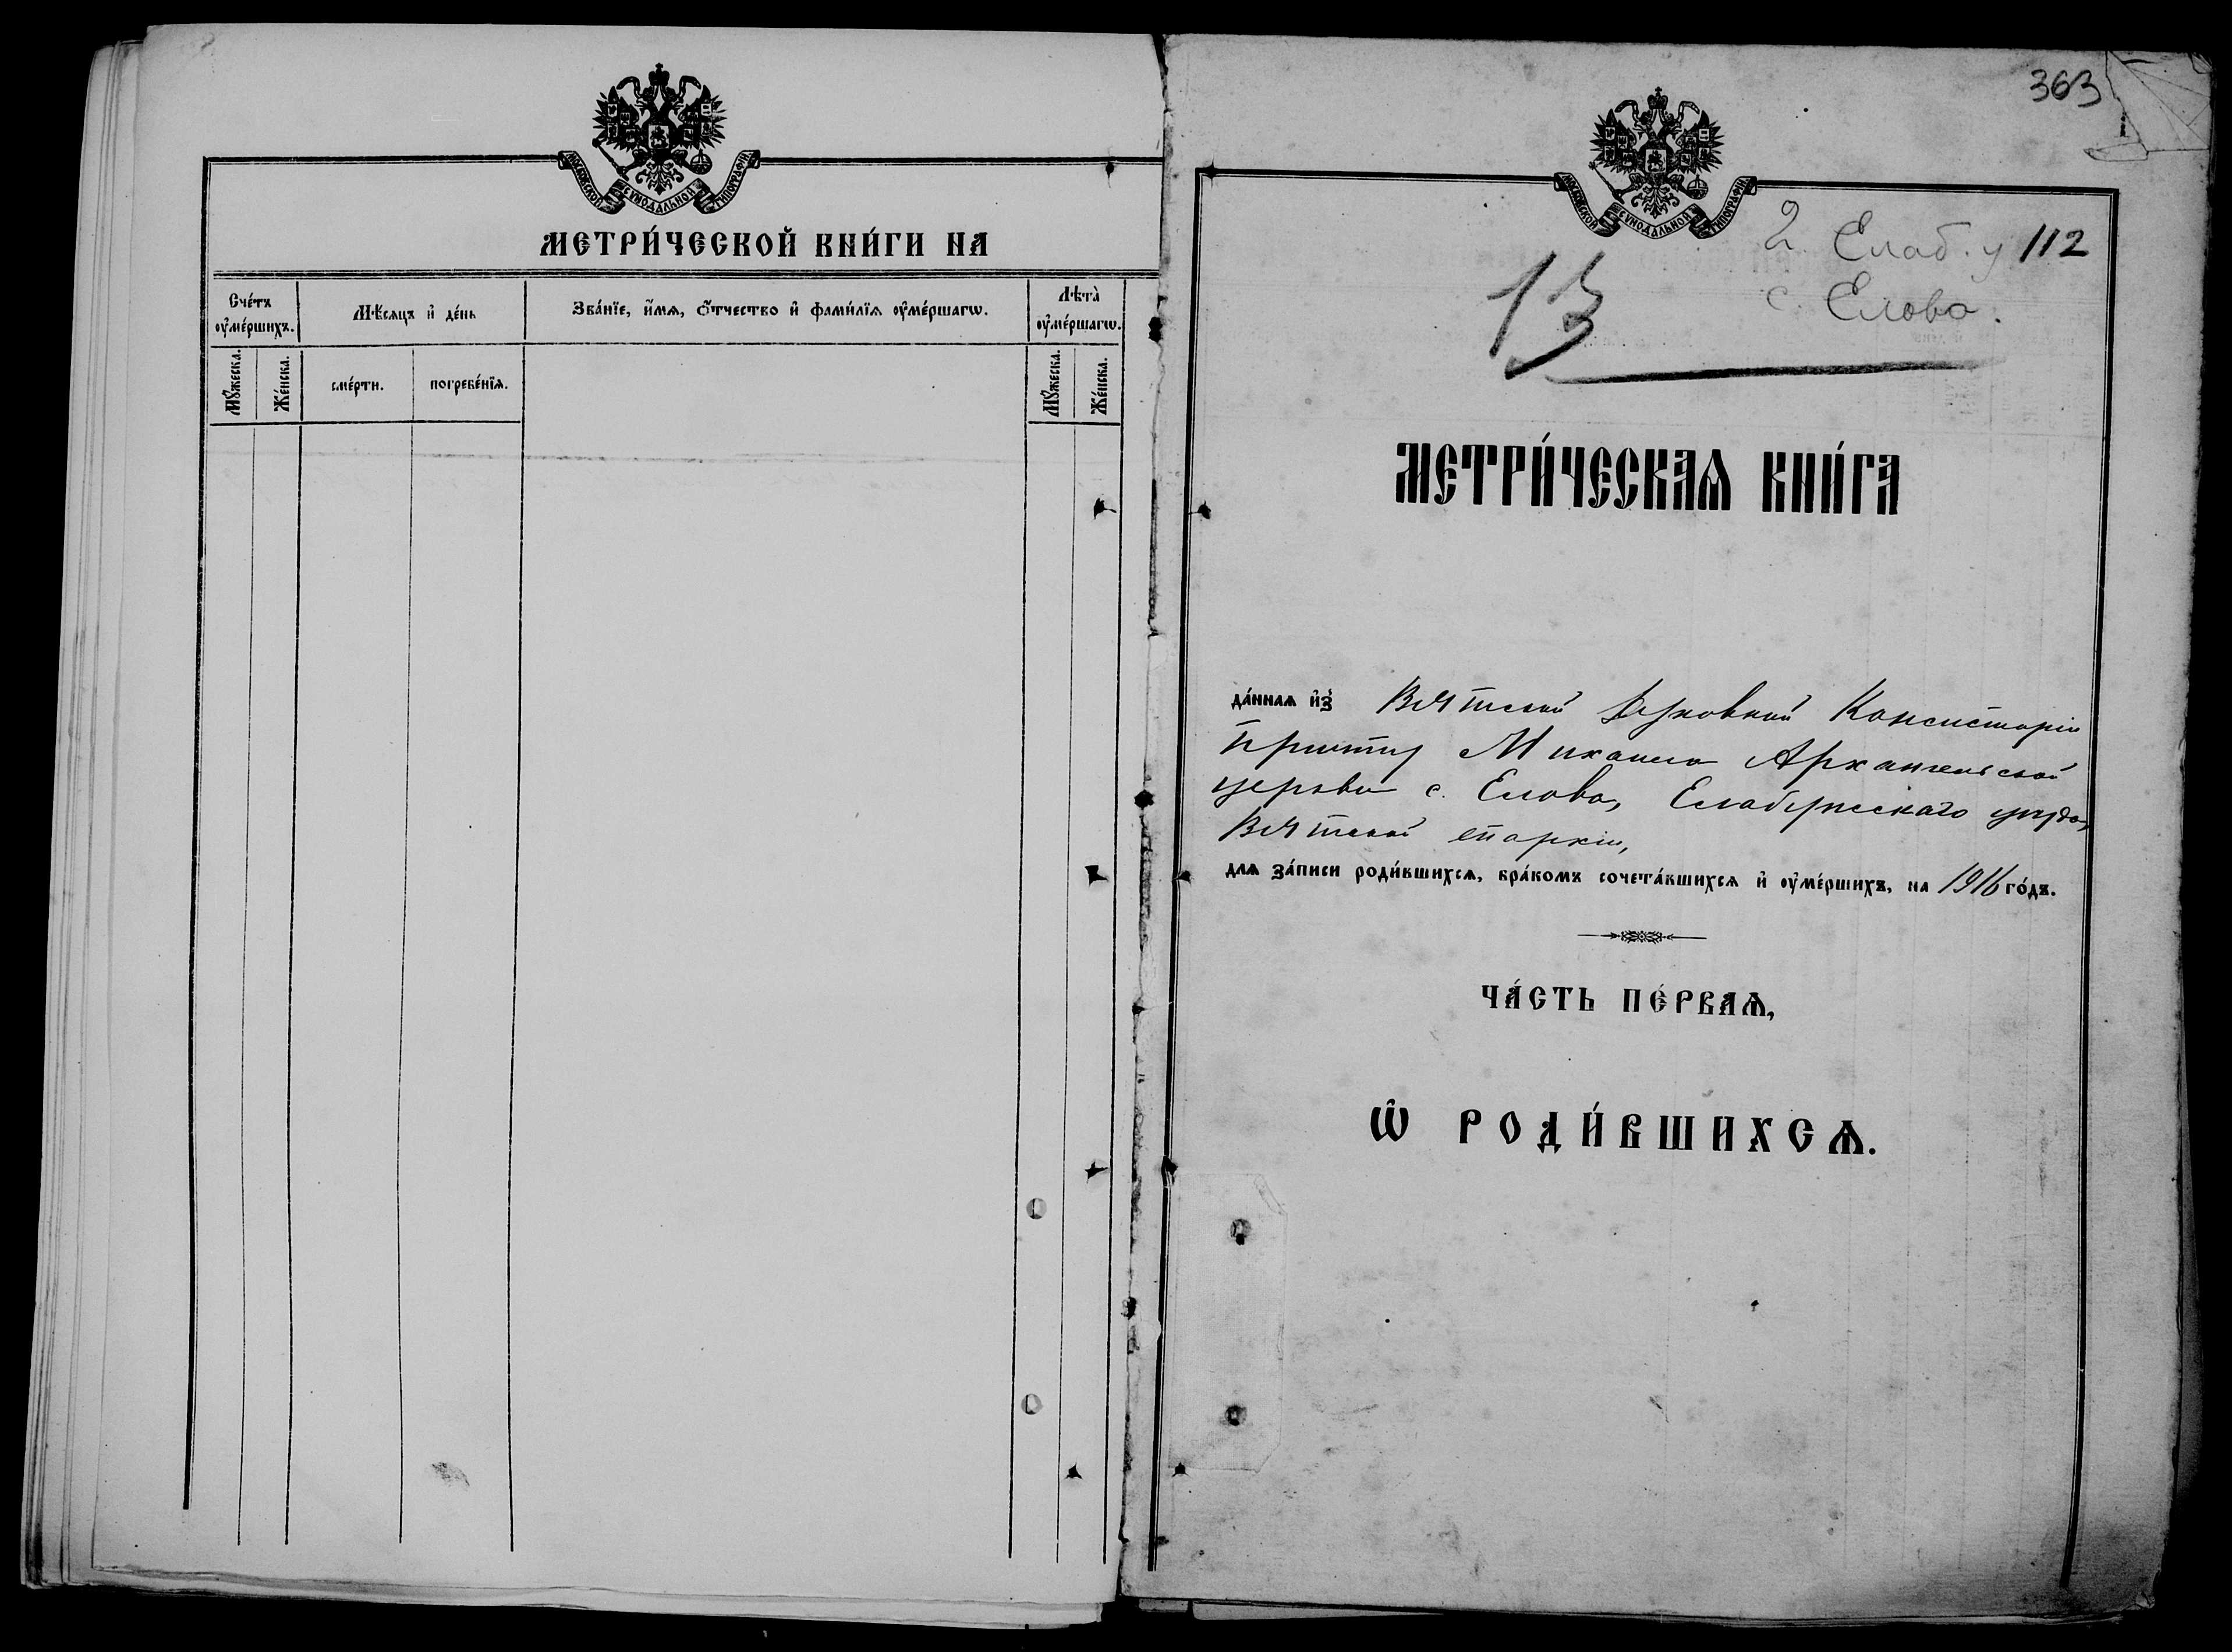 МОСКОВСКОЙ СѴНОДАЛЬНОЙ ТИПОГРАФІИ
МЕТРИ́ЧЕСКОЙ КНИ́ГИ НА
Сче́тъ оу҆ме́ршихъ.
Мѣ́сяцъ и҆ де́нь
Зва́нїе, и҆́мѧ, ѻ҆́тчество и҆ фами́лїѧ оу҆ме́ршагѡ.
Лѣта̀ оу҆ме́ршагѡ.
Мꙋ́жеска.
Же́нска.
сме́рти.
погребе́нїѧ.
Мꙋ́жеска.
Же́нска.
363
МОСКОВСКОЙ СѴНОДАЛЬНОЙ ТИПОГРАФІИ
2. Елаб. у 112
с. Елово.
13
МЕТРИ́ЧЕСКАѦ КНИ́ГА
да́ннаѧ и҆з̾ Вятской Духовной Консисторіи
причту Михаило Архангельской
церкви с. Елова, Елабужскаго уѣзда,
Вятской епархіи,
для за́писи роди́вшихсѧ, бра́комъ сочета́вшихсѧ и҆ оу҆ме́ршихъ, на 1916 го́дъ.
ЧА́СТЬ ПЕ́РВАѦ,
Ѡ҆ РОДИ́ВШИХСѦ.